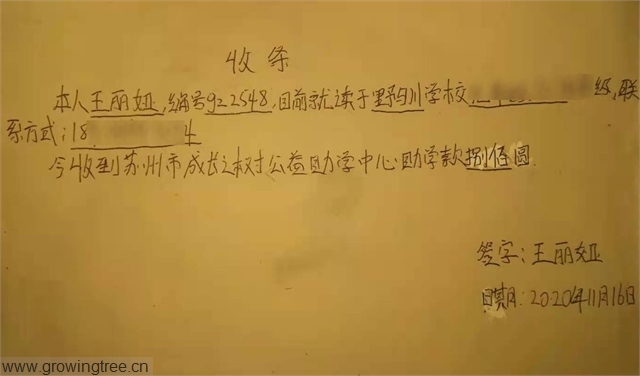 收条
本人王丽娅,编号922548,目前就读于野狗川学校,级,联
系方式:18 4
今收到苏州市成长树公益助学中心助学款捌佰圆
签字:王丽娅
日期:2020年11月16日
www.growingtree.cn